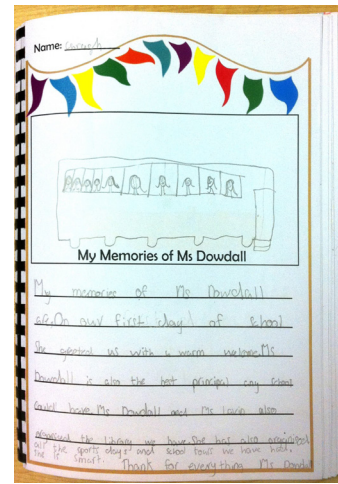 Name:
My Memories of Ms Dowdall
My memories of Ms Dowdall
are. On our first day of school
She greeted us with a warm welcome. Ms
Dowdall is also the best principal any school
could have. Ms Dowdall and Ms Lavin also
organised the library we have. She has also organised
all the sports days and school tours we have had.
She is smart.
Thank for everything Ms Dowdall